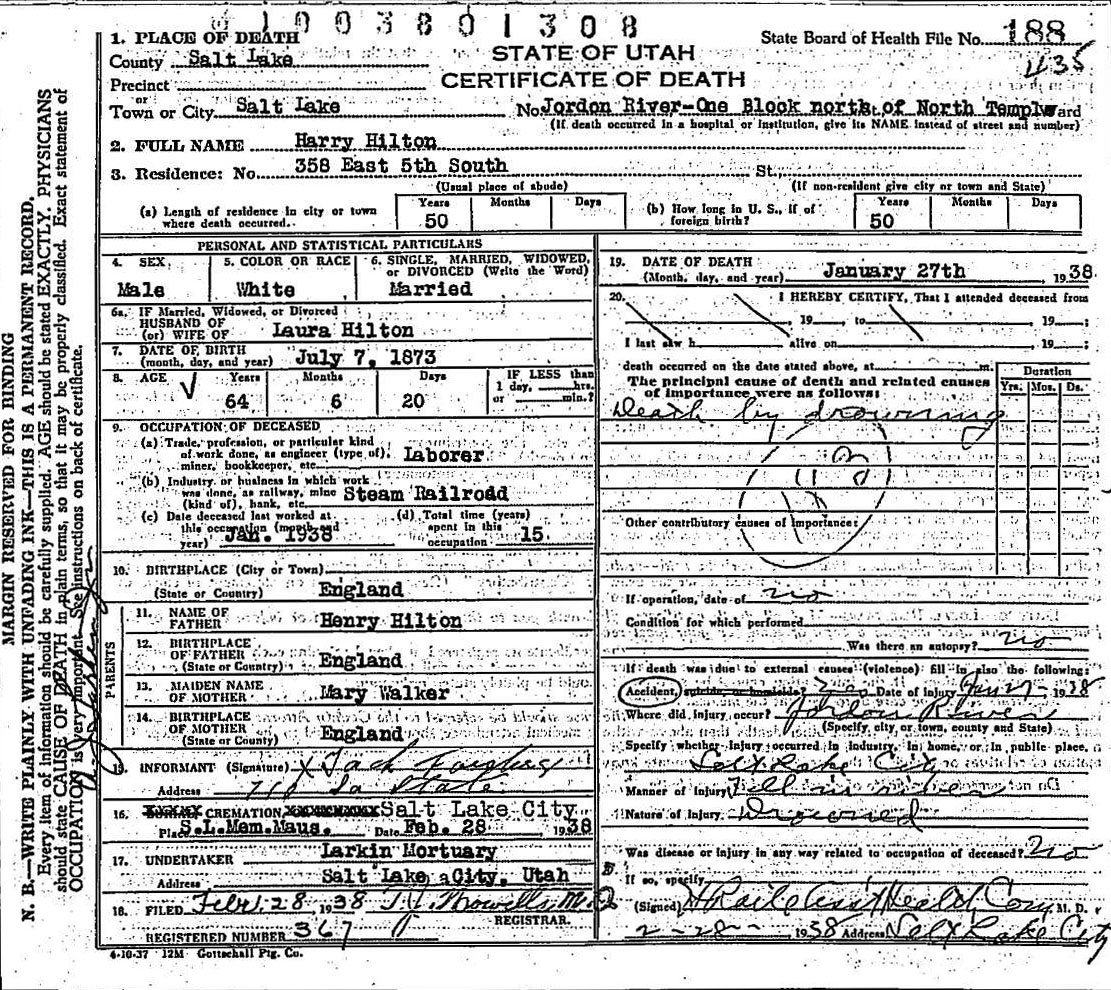 1003801308
1. PLACE OF DEATH
STATE OF UTAH
CERTIFICATE OF DEATH
State Board of Health File No. 188
435
County Salt Lake
Precinct
or
Town or City Salt Lake No. Jordon River-One Block north of North Temple Ward
(If death occurred in a hospital or institution, give its NAME instead of street and number)
2. FULL NAME Harry Hilton
3. Residence: No. 358 East 5th South St.
(Usual place of abode) (If non-resident give city or town and State)
(a) Length of residence in city or town where death occurred. Years 50 Months Days
(b) How long in U. S., if of foreign birth? Years 50 Months Days
PERSONAL AND STATISTICAL PARTICULARS
4. SEX Male
5. COLOR OR RACE White
6. SINGLE, MARRIED, WIDOWED, or DIVORCED (Write the Word) Married
6a. IF Married, Widowed, or Divorced
HUSBAND OF
(or) WIFE OF Laura Hilton
7. DATE OF BIRTH
(month, day, and year) July 7, 1873
8. AGE Years 64 Months 6 Days 20 IF LESS than 1 day, hrs. or min.?
9. OCCUPATION OF DECEASED
(a) Trade, profession, or particular kind
of work done, as engineer (type of),
miner, bookkeeper, etc. Laborer
(b) Industry or business in which work
was done, as railway, mine
(kind of), bank, etc. Steam Railroad
(c) Date deceased last worked at
this occupation (month and
year) Jan. 1938
(d) Total time (years)
spent in this
occupation 15
10. BIRTHPLACE (City or Town)
(State or Country) England
PARENTS
11. NAME OF
FATHER Henry Hilton
12. BIRTHPLACE
OF FATHER
(State or Country) England
13. MAIDEN NAME
OF MOTHER Mary Walker
14. BIRTHPLACE
OF MOTHER
(State or Country) England
15. INFORMANT (Signature) X Jack
Address 710 So State
16. CREMATION Salt Lake City
Place S.L.Mem.Maus. Date Feb. 28 1938
17. UNDERTAKER Larkin Mortuary
Address Salt Lake City, Utah
18. FILED Febr. 28 1938
REGISTRAR.
REGISTERED NUMBER 367
4-10-37 12M Gottschall Ptg. Co.
19. DATE OF DEATH
(Month, day, and year) January 27th 1938
20. I HEREBY CERTIFY, That I attended deceased from
, 19 , to , 19 ;
I last saw h alive on , 19 ;
death occurred on the date stated above, at m.
The principal cause of death and related causes
of importance were as follows:
Duration
Yrs. Mos. Ds.
Death by drowning
Other contributory causes of importance:
If operation, date of no
Condition for which performed
Was there an autopsy? no
If death was due to external causes (violence) fill in also the following:
Accident, suicide or homicide? Yes Date of injury Jan 27 - 1938
Where did injury occur? Jordon River
(Specify city or town, county and State)
Specify whether injury occurred in industry, in home, or in public place.
Salt Lake City
Manner of Injury Fell in river
Nature of Injury Drowned
Was disease or injury in any way related to occupation of deceased? no
If so, specify
(Signed) Health Com M. D.
2-28- 1938 Address Salt Lake City
MARGIN RESERVED FOR BINDING
N. B.—WRITE PLAINLY, WITH UNFADING INK—THIS IS A PERMANENT RECORD.
Every item of information should be carefully supplied. AGE should be stated EXACTLY. PHYSICIANS
should state CAUSE OF DEATH in plain terms, so that it may be properly classified. Exact statement of
OCCUPATION is very important. See instructions on back of certificate.